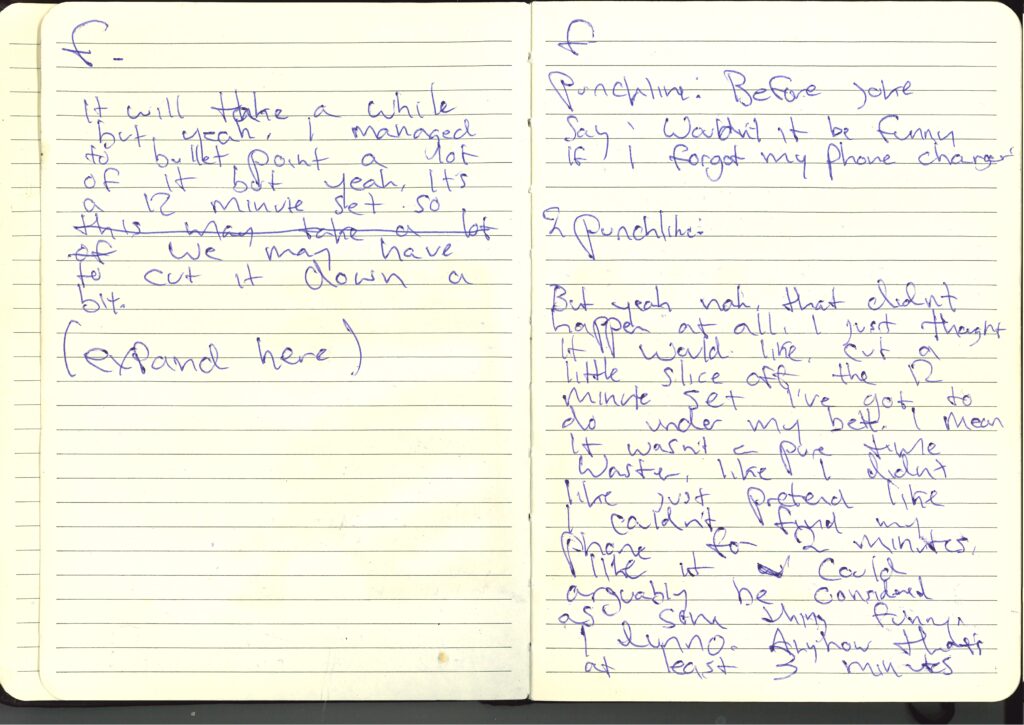 f.
It will take a while
but, yeah, I managed
to bullet point a lot
of it but yeah, It's
a 12 minute set so
this may take a lot
of we may have
to cut it down a
bit.
(expand here)
f
Punchline: Before joke
Say: Wouldn't it be funny
if I forgot my phone charger
2 Punchline:
But yeah nah, that didn't
happen at all, I just thought
it would like, cut a
little slice off the 12
minute set I've got to
do under my belt. I mean
It wasn't a pure time
Waster, like I didn't
like just pretend like
I couldn't find my
phone for 2 minutes,
like it could
arguably be considered
as some thing funny.
I dunno. Anyhow that's
at least 3 minutes